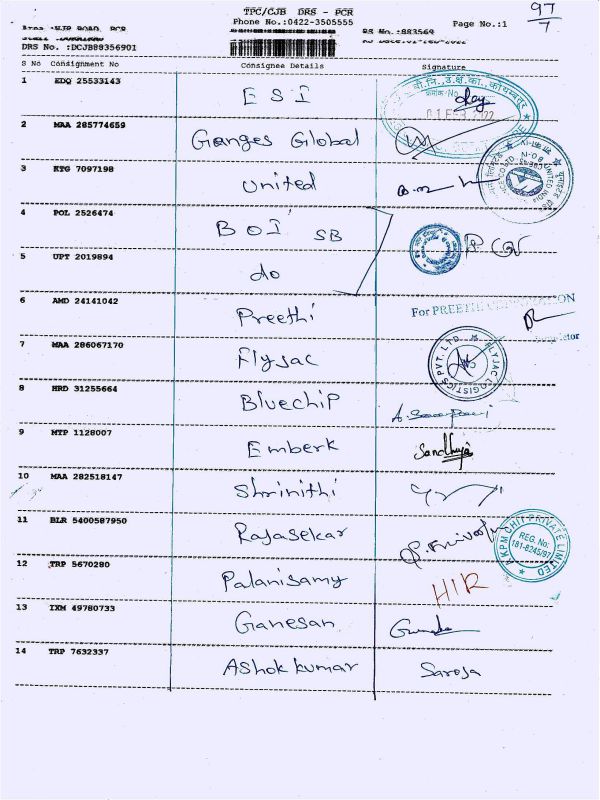 TPC/CJB DRS - PCR
Phone No.:0422-3505555
Page No.:1
97
7
DRS No. :DCJB88356901
RS No.:883569
S No Consignment No Consignee Details Signature
1 EDQ 25533143 ESI
2 MAA 285774659 Ganges Global
3 KTG 7097198 United
4 POL 2526474 BOI SB
5 UPT 2019894 do
6 AMD 24141042 Preethi For PREETHI
7 MAA 286067170 Flyjac FLYJAC LOGISTICS PVT. LTD.
8 HRD 31255664 Bluechip
9 MTP 1128007 Emberk Sandhya
10 MAA 282518147 Shrinithi
11 BLR 5400587950 Rajasekar KPM CHIT PRIVATE LIMITED REG. No: 181-8245/97
12 TRP 5670280 Palanisamy HIR
13 IXM 49780733 Ganesan
14 TRP 7632337 Ashok kumar Saroja